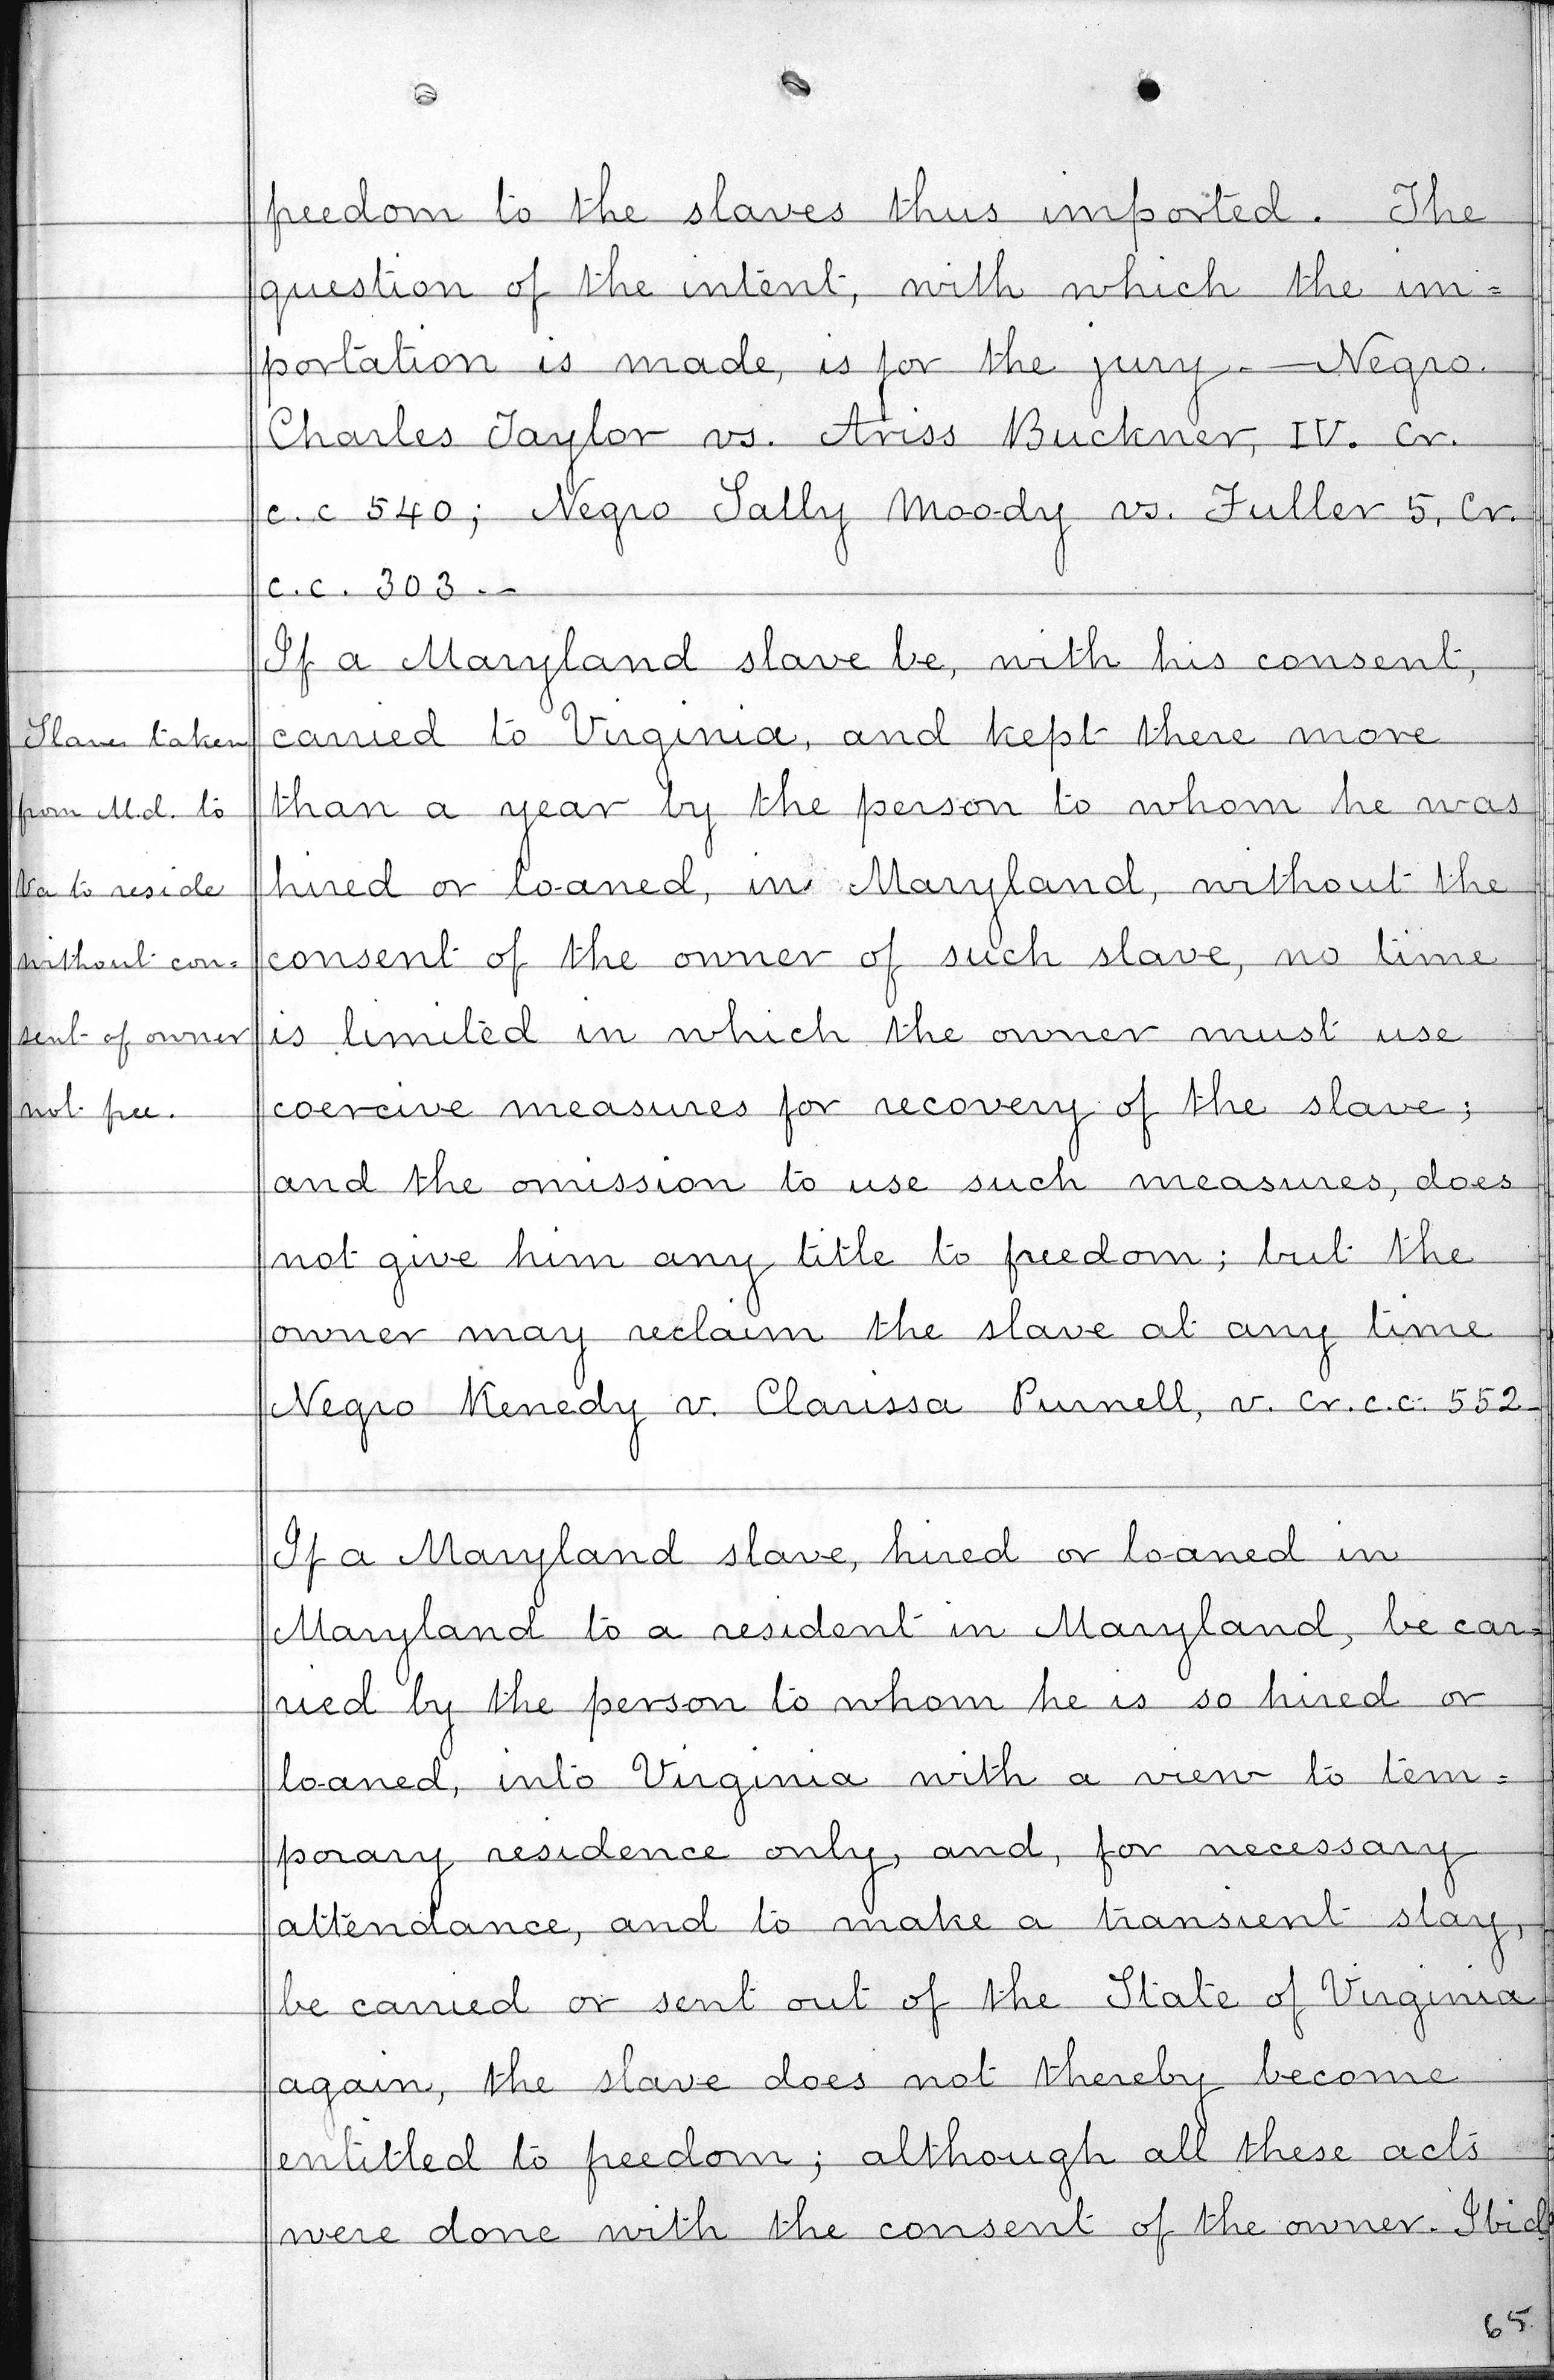 freedom to the slaves thus imported. The
question of the intent, with which the im=
portation is made, is for the jury. — Negro.
Charles Taylor vs. Ariss Buckner, IV. Cr.
c.c 540; Negro Sally Moody vs. Fuller 5, Cr.
c.c. 303.—
If a Maryland slave be, with his consent,
carried to Virginia, and kept there more
than a year by the person to whom he was
hired or loaned, in Maryland, without the
consent of the owner of such slave, no time
is limited in which the owner must use
coercive measures for recovery of the slave;
and the omission to use such measures, does
not give him any title to freedom; but the
owner may reclaim the slave at any time
Negro Kenedy v. Clarissa Purnell, v. Cr.c.c. 552
Slaves taken
from M.d. to
Va to reside
without con=
sent of owner
not free.
If a Maryland slave, hired or loaned in
Maryland to a resident in Maryland, be car=
ried by the person to whom he is so hired or
loaned, into Virginia with a view to tem=
porary residence only, and, for necessary
attendance, and to make a transient stay,
be carried or sent out of the State of Virginia
again, the slave does not thereby become
entitled to freedom; although all these acts
were done with the consent of the owner. Ibid
65